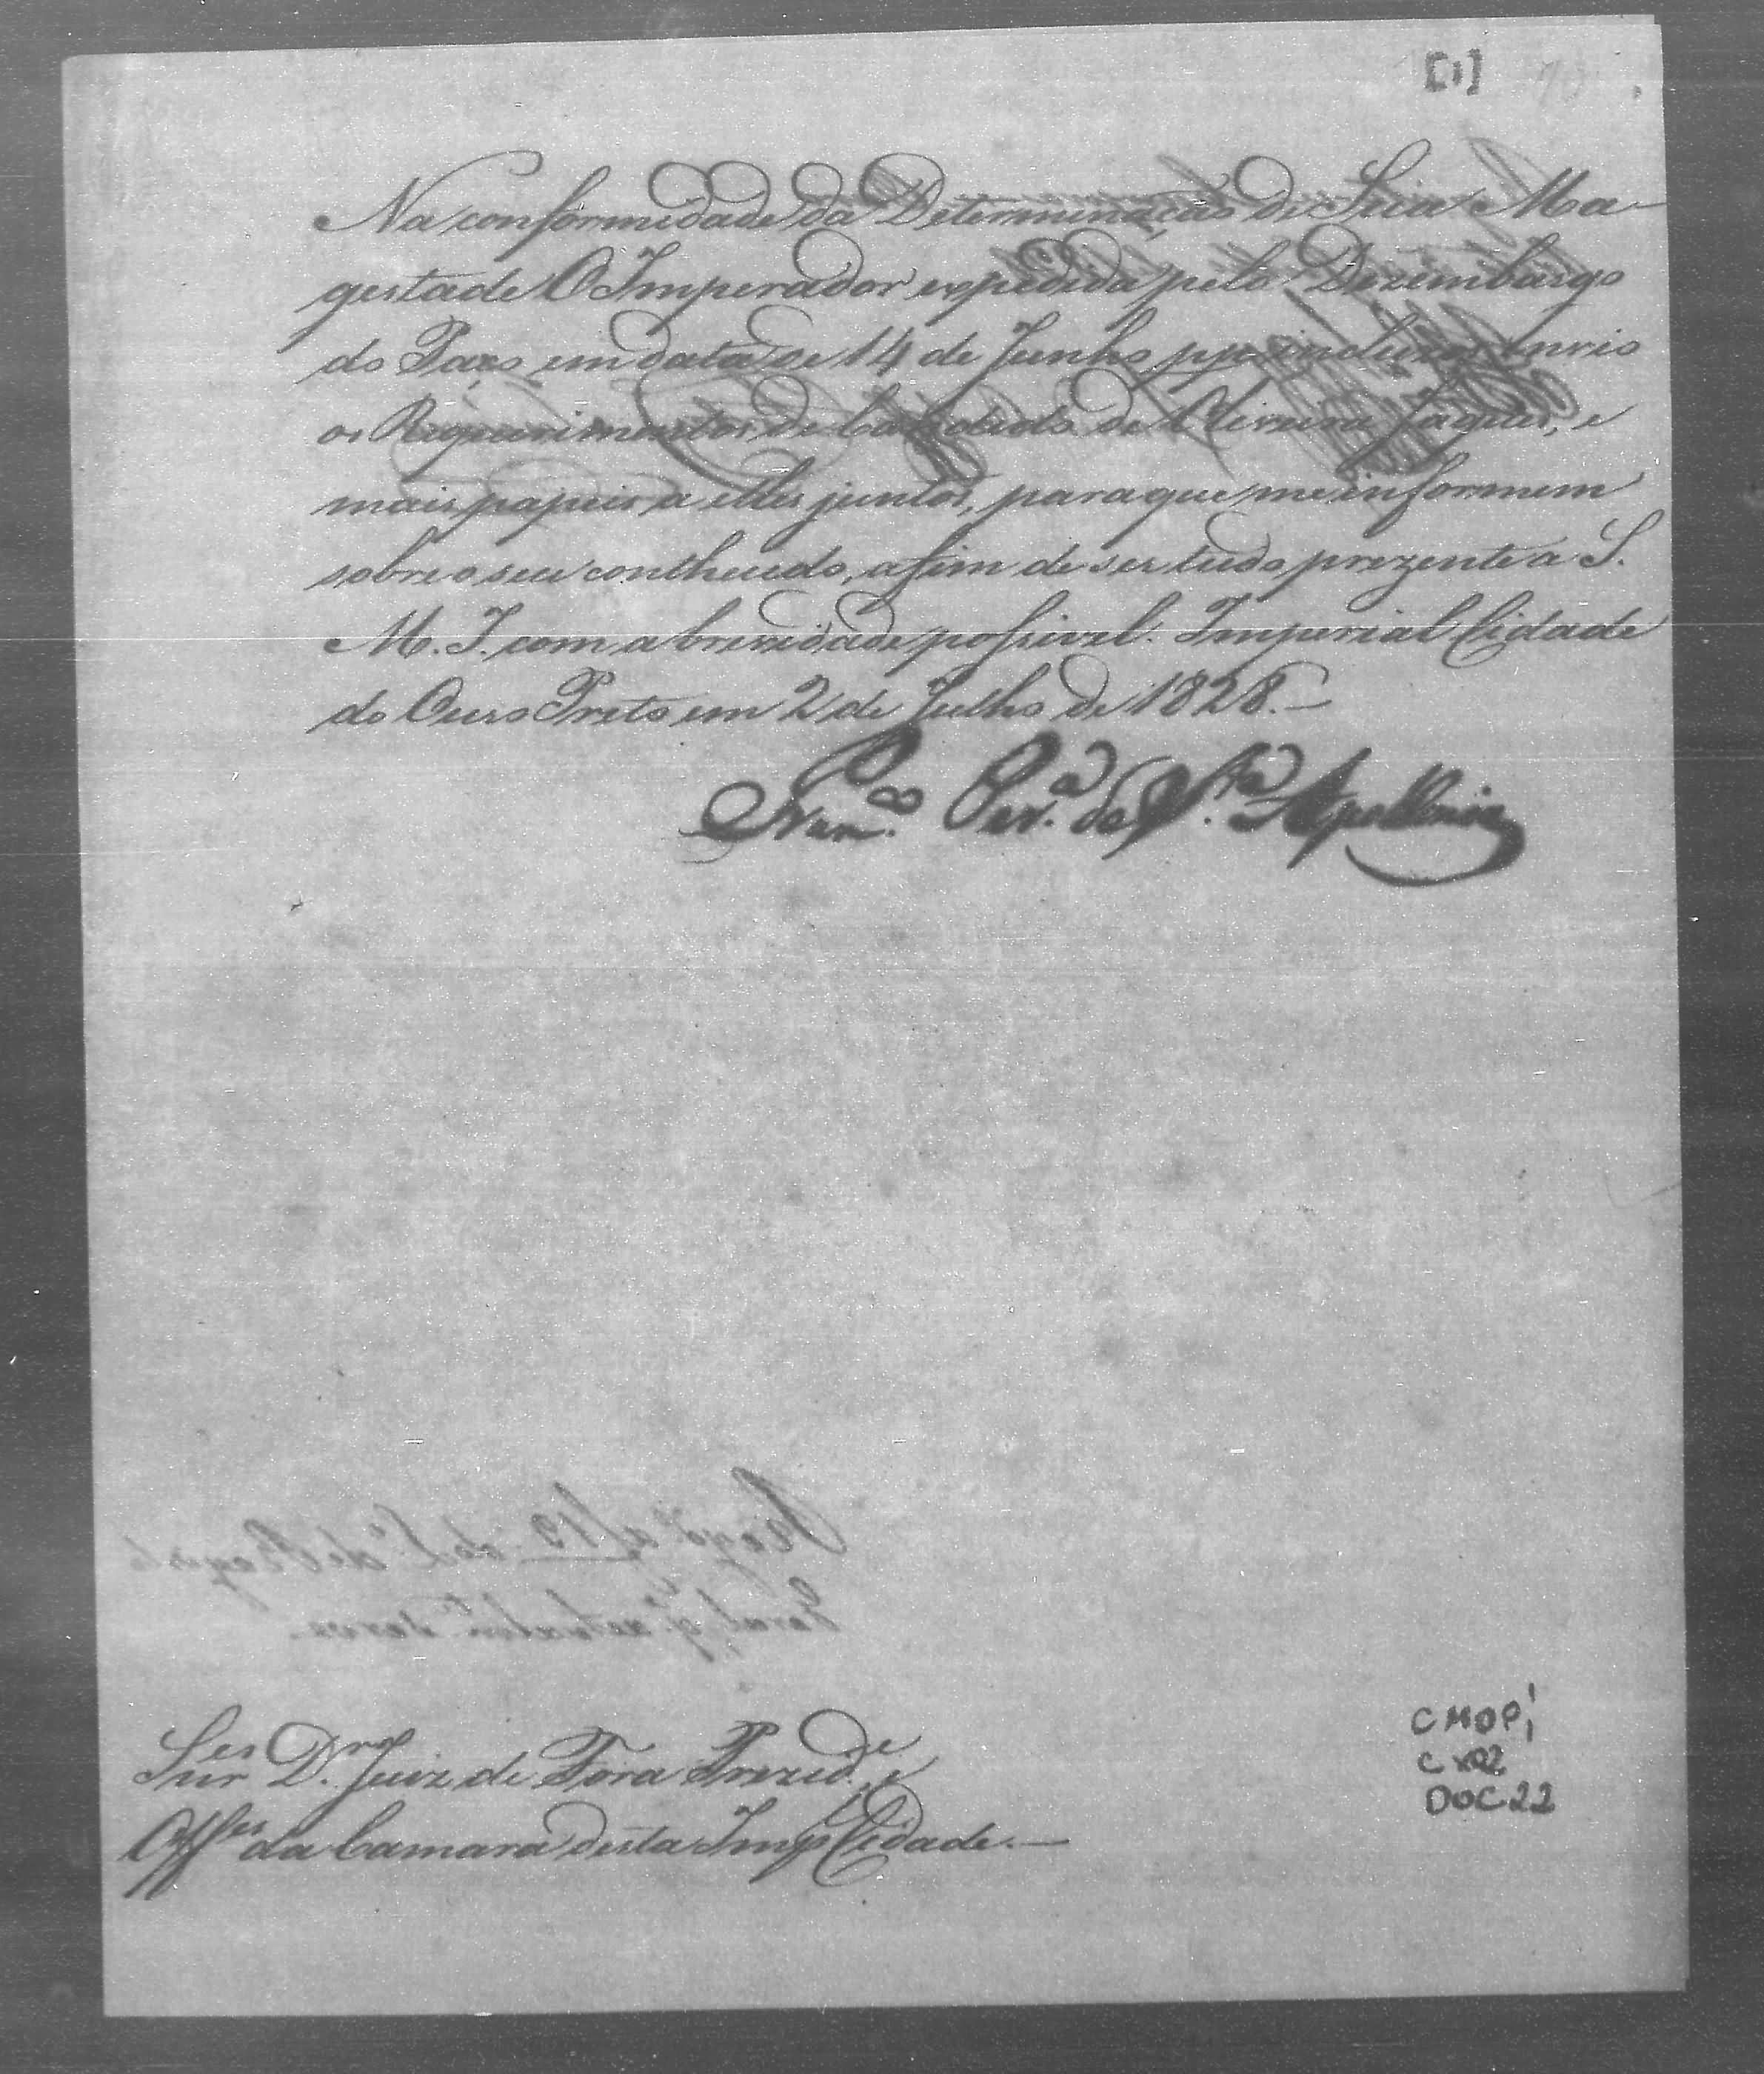 [1]
Na conformidade da Determinação de Sua Ma-
gestade O Imperador expedida pelo Dezembargo
do Paço em data de 14 de Junho pp. incluzos envio
os Requerimentos de Candido de Oliveira Jaques, e
mais papeis a elles juntos, para que me informem
sobre o seu contheudo, afim de ser tudo prezente a S.
M. I. com a brevidade possivel. Imperial Cidade
do Ouro Preto em 2 de Julho de 1828.—
Fran.co Per.a de S.ta Apollonia
Snr.es D.r Juiz de Fora Prezid.e e
Off.es da Camara desta Imp.l Cidade.—
CMOP
CX02
DOC 22